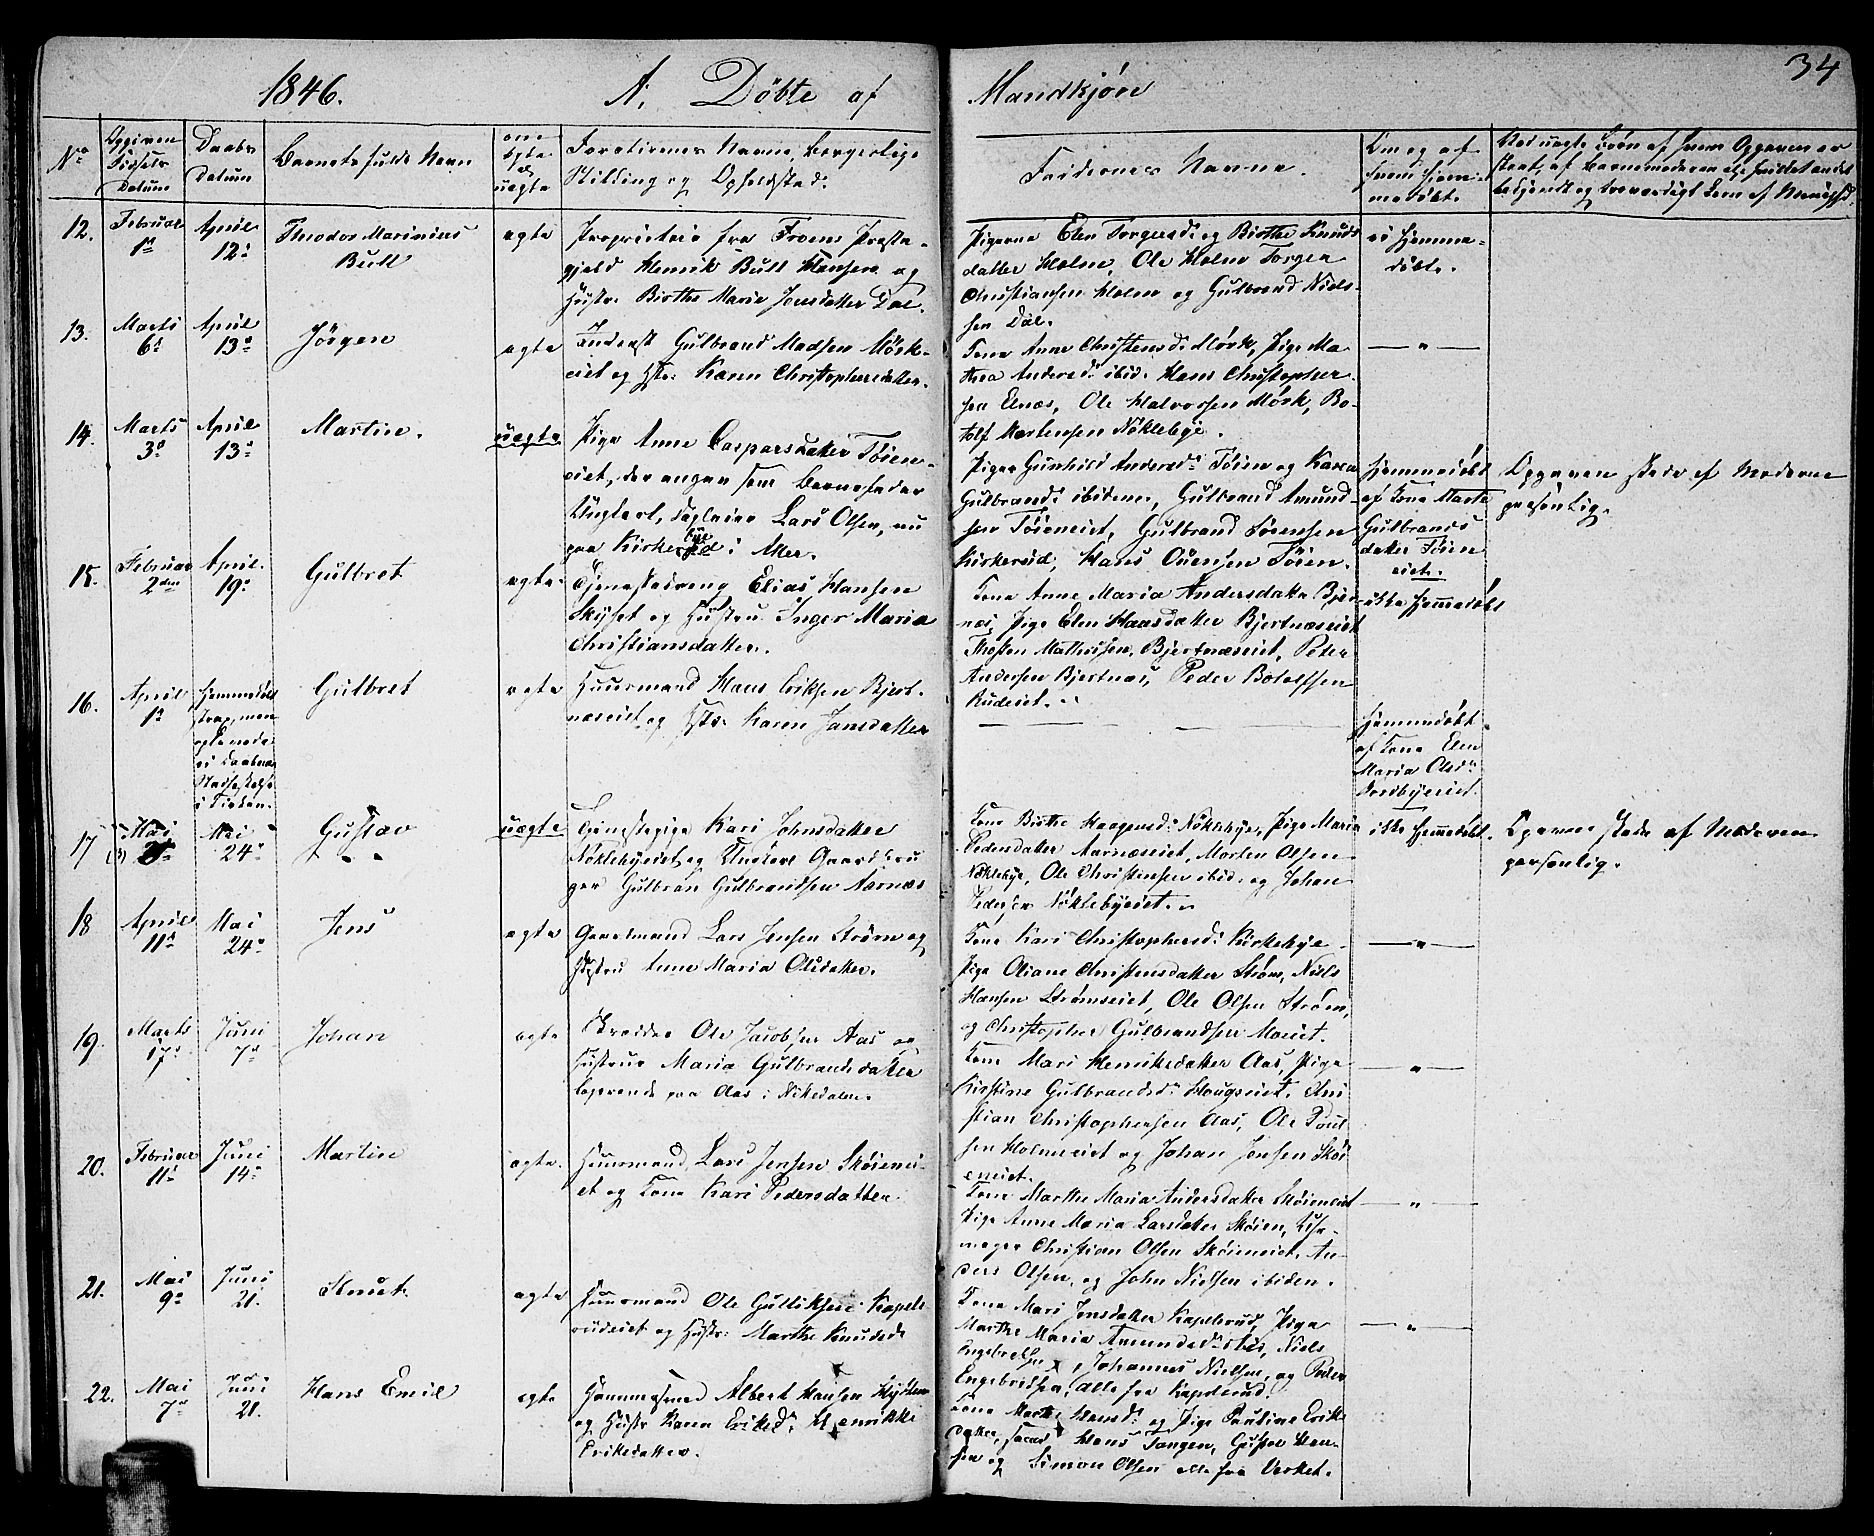 34
1846.
A. Döbte af Mandkjøn
No
Opgiven Födsels Datum
Daabs Datum
Barnets fulde Navn
om ægte el. uægte
Forældrenes Navne, borgerlige
Stilling og Opholdsted.
Faddernes Navne.
Om og af hvem hjemmedöbt.
12.
Februar 1ste
April 12:
Theodor Marinius
Bull
ægte
Proprietær fra Froens Præste-
gjeld Henrik Bull Hansen og
Hustr. Birthe Marie Jensdatter Dal.
Pigerne Elen Torgersd: og Birthe Knuds
datter Holm, Ole Holm Torger
Christiansen Holm og Gulbrand Niels-
sen Dal.
ei hjemme-
döbt.
13.
Marts 6te
April 13de
Jörgen
ægte
Inderst Gulbrand Madsen Mörk-
eiet og Hstr: Karen Christophersdatter.
Kone Anne Christensd: Mörk, Pige Ma-
thea Andersd: ibid. Hans Christopher-
sen Elnæs, Ole Halvorsen Mörk, Bo-
tolf Mortensen Nöklebye.
— " —
14.
Marts 3de
April 13:
Martin.
uægte
Pige Anne Caspersdatter Töien-
eiet, der angav som Barnefader
Ungkarl, Daglejer Lars Olsen, nu
paa Kirkerud i Aker.
Piger Gunhild Andersd: Töien og Karen
Gulbrandsd: ibidem, Gulbrand Amund-
sen Töieneiet, Gulbrand Sörensen
Kirkerud, Hans Ouensen Töien.
Hjemmedöbt
af Kone Marte
Gulbrands
datter Töien
eiet.
Opgaven skede af Moderen
personlig.
15.
Februar 2den
April 19:
Gulbret
ægte
Tjenestedreng Elias Hansen
Skyset og Hustru Inger Maria
Christiansdatter.
Kone Anne Maria Andersdatter Bjert-
næs, Pige Elen Hansdatter Bjertnæseiet
Thosten Mathisen, Bjertnæseiet, Peder
Andersen Bjertnæs, Peder Botolfsen
Rudeiet.
ikke hjemmedöbt
16.
April 1ste
Hjemmedöbt
Gulbret
ægte
Huusmand Hans Eriksen Bjert-
næseiet og Hstr: Karen Jansdatter
Hjemmedöbt
af Kone Elen
Maria Olsdtr
Nordbyeiet.
17
Mai
Mai 24:
Gustav
uægte
Tjenestepige Kari Johnsdatter
Nöklebyeiet og Ungkarl Gaardbru
ger Gulbran Gulbrandsen Aarnæs
Kone Birthe Haagensd: Nöklebye, Pige Maria
Pedersdatter Aarnæseiet, Morten Olsen
Nöklebye, Ole Christensen ibid. og Johan
Pedersen Nöklebyeiet.
ikke hjemmedöbt.
Opgaven skede af Moderen
personlig.
18
April 11te
Mai 24:
Jens
ægte
Gaardmand Lars Jensen Ström og
Hustru Anne Maria Olsdatter.
Kone Kari Christophersd: Kirkebye
Pige Oliane Christensdatter Ström, Niels
Hansen Strömseiet, Ole Olsen Ström,
og Christopher Gulbrandsen Moeiet.
— " —
19.
Marts 17:
Juni 7de
Johan
ægte
Skrædder Ole Jacobsen Aas og
Hustrue Maria Gulbrandsdatter
logerende paa Aas i Nikedalen.
Kone Mari Henriksdatter Aas, Pige
Kirstine Gulbrandsd: Haugseiet, Chri
stian Christophersen Aas, Ole Poul
sen Holmseiet og Johan Jensen Sköi
eneiet.
— " —
20.
Februar 11te
Juni 14:
Martin
ægte.
Huusmand Lars Jensen Sköienei-
et og Kone Kari Pedersdatter
Kone Marthe Maria Andersdatter Sköieneiet
Pige Anne Maria Larsdatter Sköien,
Christian Olsen Sköieneiet, An-
ders Olsen, og John Nielsen ibiden.
— " —
21.
Mai 9de
Juni 21.
Knut.
ægte
Huusmand Ole Gulliksen Kapels-
rudeiet og Hustr: Marthe Knudsd:
Kone Mari Jensdatter Kapelsrud, Pige
Marthe Maria Amundsdtr ibid, Niels
Engebretsen, Johannes Nielsen, og Peder
Engebretsen, alle fra Kapelsrud.
— " —
22.
Mai 7de
Juni 21.
Hans Emil
ægte
Hammersmed Albert Hansen
og Hustr Karen Eriksd: Henrikke
Eriksdatter.
Kone Marthe Hansd: og Pige Pauline Eriks
datter, Hans Tangen, Gustav Han-
sen og Simon Olsen alle fra Verket.